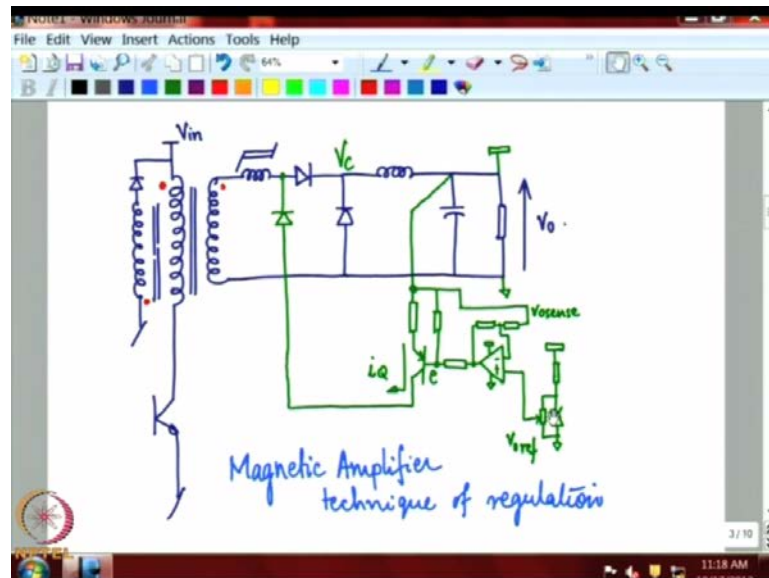 Note1 - Windows Journal
File Edit View Insert Actions Tools Help
64%
B I
Vin
Vc
Vo
Vosense
iQ
e
Voref
Magnetic Amplifier
technique of regulation
3 / 10
NPTEL
11:18 AM